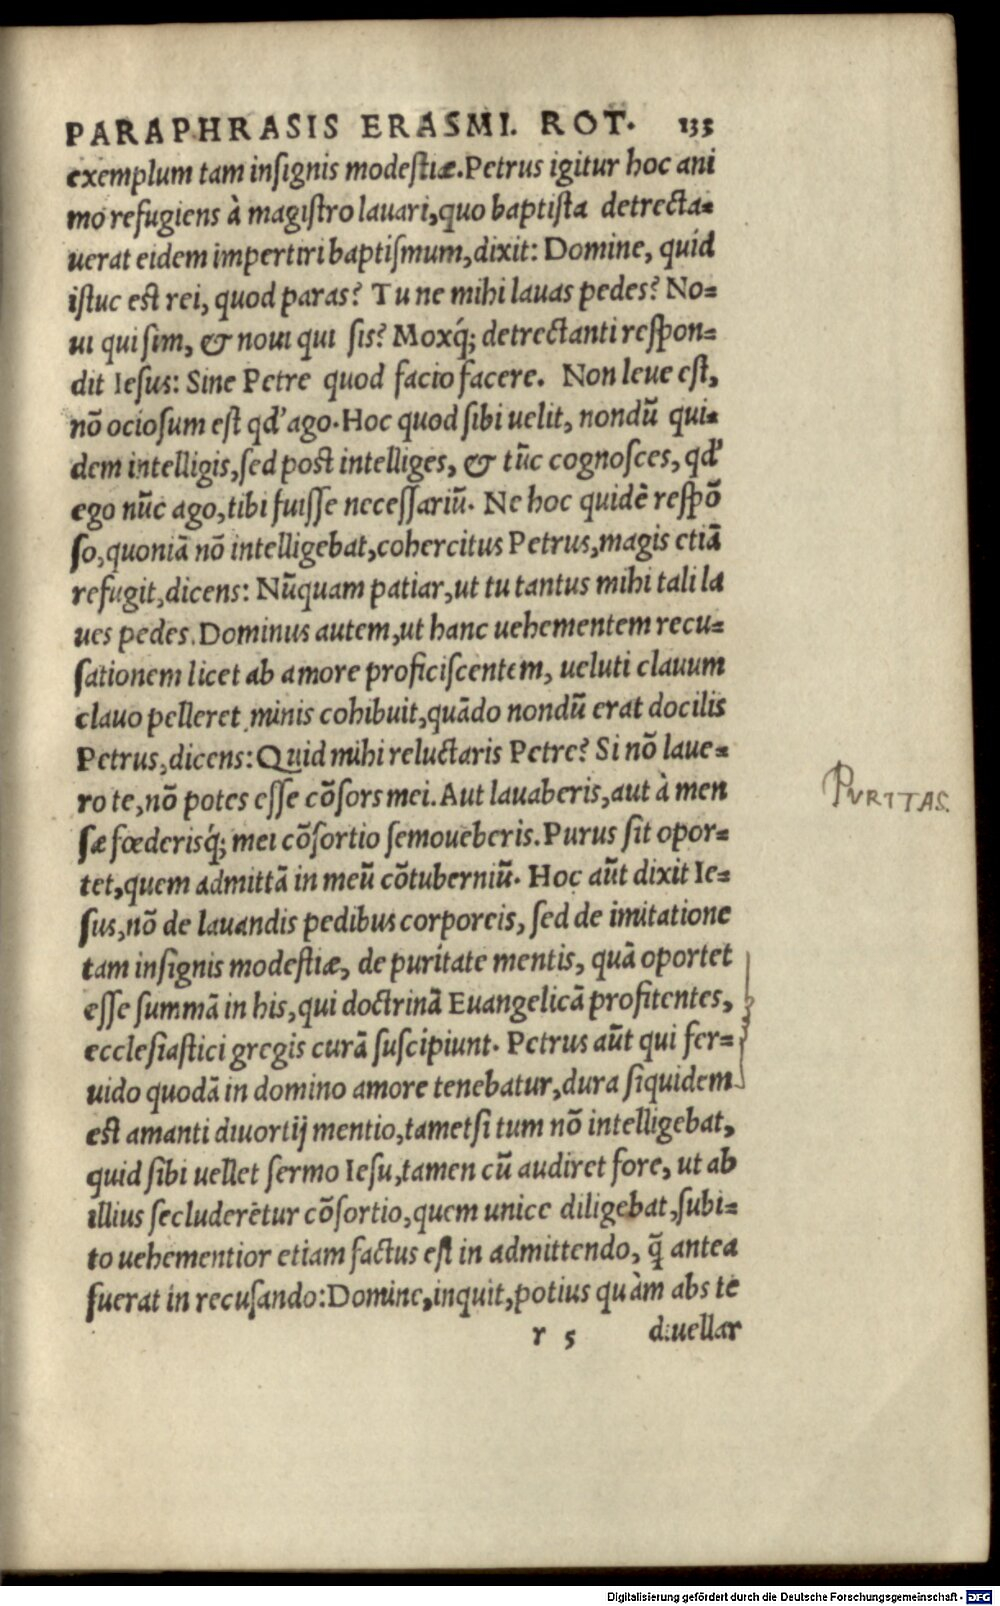 PARAPHRASIS ERASMI. ROT. 135
exemplum tam inſignis modeſtiæ. Petrus igitur hoc ani
mo refugiens à magiſtro lauari, quo baptiſta detrecta-
uerat eidem impertiri baptiſmum, dixit: Domine, quid
iſtuc eſt rei, quod paras? Tu ne mihi lauas pedes? No-
ui qui ſim, & noui qui ſis? Moxq́; detrectanti reſpon-
dit Ieſus: Sine Petre quod facio facere. Non leue eſt,
nō ocioſum eſt qd' ago. Hoc quod ſibi uelit, nondū qui-
dem intelligis, ſed poſt intelliges, & tūc cognoſces, qd'
ego nūc ago, tibi fuiſſe neceſſariū. Ne hoc quidē reſpō
ſo, quoniā nō intelligebat, cohercitus Petrus, magis etiā
refugit, dicens: Nūquam patiar, ut tu tantus mihi tali la
ues pedes. Dominus autem, ut hanc uehementem recu-
ſationem licet ab amore proficiſcentem, ueluti clauum
clauo pelleret minis cohibuit, quādo nondū erat docilis
Petrus, dicens: Quid mihi reluctaris Petre? Si nō laue-
ro te, nō potes eſſe cōſors mei. Aut lauaberis, aut à men
ſæ fœderisq́; mei cōſortio ſemoueberis. Purus ſit opor-
PURITAS.
tet, quem admittā in meū cōtuberniū. Hoc aūt dixit Ie-
ſus, nō de lauandis pedibus corporeis, ſed de imitatione
tam inſignis modeſtiæ, de puritate mentis, quā oportet
eſſe ſummā in his, qui doctrinā Euangelicā profitentes,
eccleſiaſtici gregis curā ſuſcipiunt. Petrus aūt qui fer-
uido quodā in domino amore tenebatur, dura ſiquidem
eſt amanti diuortij mentio, tametſi tum nō intelligebat,
quid ſibi uellet ſermo Ieſu, tamen cū audiret fore, ut ab
illius ſecluderētur cōſortio, quem unice diligebat, ſubi-
to uehementior etiam factus eſt in admittendo, q̄ antea
fuerat in recuſando: Domine, inquit, potius quàm abs te
r 5 diuellar
Digitalisierung gefördert durch die Deutsche Forschungsgemeinschaft - DFG